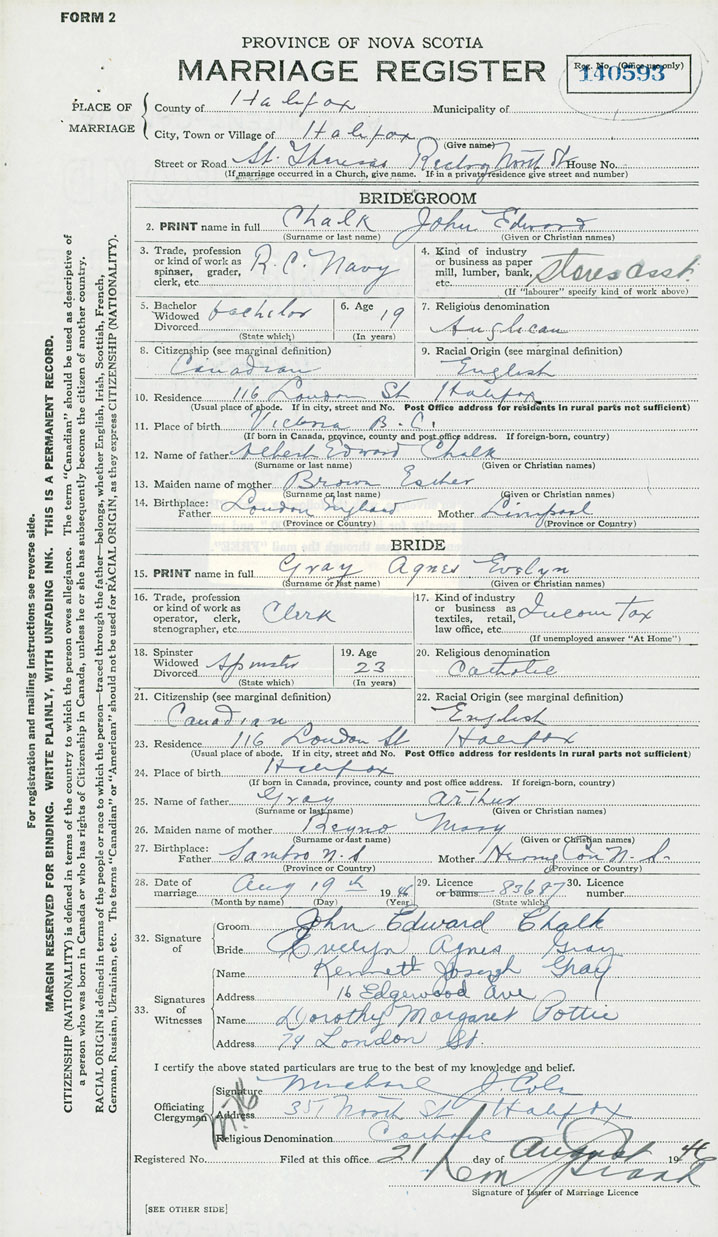 FORM 2
PROVINCE OF NOVA SCOTIA
MARRIAGE REGISTER
Reg. No. (Office use only)
140593
PLACE OF MARRIAGE
County of Halifax Municipality of
City, Town or Village of Halifax
(Give name)
Street or Road St. Theresas Rectory North St House No.
(If marriage occurred in a Church, give name. If in a private residence give street and number)
BRIDEGROOM
2. PRINT name in full Chalk John Edward
(Surname or last name) (Given or Christian names)
3. Trade, profession or kind of work as spinner, grader, clerk, etc. R.C. Navy
4. Kind of industry or business as paper mill, lumber, bank, etc. Stores asst.
(If "labourer" specify kind of work above)
5. Bachelor Widowed Divorced bachelor
(State which)
6. Age 19
(In years)
7. Religious denomination
Anglican
8. Citizenship (see marginal definition)
Canadian
9. Racial Origin (see marginal definition)
English
10. Residence 116 London St Halifax
(Usual place of abode. If in city, street and No. Post Office address for residents in rural parts not sufficient)
11. Place of birth Victoria B.C.
(If born in Canada, province, county and post office address. If foreign-born, country)
12. Name of father Albert Edward Chalk
(Surname or last name) (Given or Christian names)
13. Maiden name of mother Brown Esther
(Surname or last name) (Given or Christian names)
14. Birthplace: Father London England Mother Liverpool
(Province or Country) (Province or Country)
BRIDE
15. PRINT name in full Gray Agnes Evelyn
(Surname or last name) (Given or Christian names)
16. Trade, profession or kind of work as operator, clerk, stenographer, etc. Clerk
17. Kind of industry or business as textiles, retail, law office, etc. Incom Tax
(If unemployed answer "At Home")
18. Spinster Widowed Divorced Spinster
(State which)
19. Age
23
(In years)
20. Religious denomination
Catholic
21. Citizenship (see marginal definition)
Canadian
22. Racial Origin (see marginal definition)
English
23. Residence 116 London St Halifax
(Usual place of abode. If in city, street and No. Post Office address for residents in rural parts not sufficient)
24. Place of birth Halifax
(If born in Canada, province, county and post office address. If foreign-born, country)
25. Name of father Gray Arthur
(Surname or last name) (Given or Christian names)
26. Maiden name of mother Reyno Mary
(Surname or last name) (Given or Christian names)
27. Birthplace: Father Sambro N.S Mother Herring Cove N.S.
(Province or Country) (Province or Country)
28. Date of marriage Aug 19th 1946
(Month by name) (Day) (Year)
29. Licence or banns 83687
(State which)
30. Licence number
32. Signature of
Groom John Edward Chalk
Bride Evelyn Agnes Gray
33. Signatures of Witnesses
Name Kenneth Joseph Gray
Address 16 Edgewood Ave
Name Dorothy Margaret Pottie
Address 79 London St.
I certify the above stated particulars are true to the best of my knowledge and belief.
Officiating Clergyman
Signature Michael J. Cole
Address 351 North St Halifax
Religious Denomination Catholic
Registered No. Filed at this office 21 day of August 1946
Signature of Issuer of Marriage Licence
[SEE OTHER SIDE]
For registration and mailing instructions see reverse side.
MARGIN RESERVED FOR BINDING. WRITE PLAINLY, WITH UNFADING INK. THIS IS A PERMANENT RECORD.
CITIZENSHIP (NATIONALITY) is defined in terms of the country to which the person owes allegiance. The term "Canadian" should be used as descriptive of
a person who was born in Canada or who has rights of Citizenship in Canada, unless he or she has subsequently become the citizen of another country.
RACIAL ORIGIN is defined in terms of the people or race to which the person—traced through the father—belongs, whether English, Irish, Scottish, French,
German, Russian, Ukrainian, etc. The terms "Canadian" or "American" should not be used for RACIAL ORIGIN, as they express CITIZENSHIP (NATIONALITY).